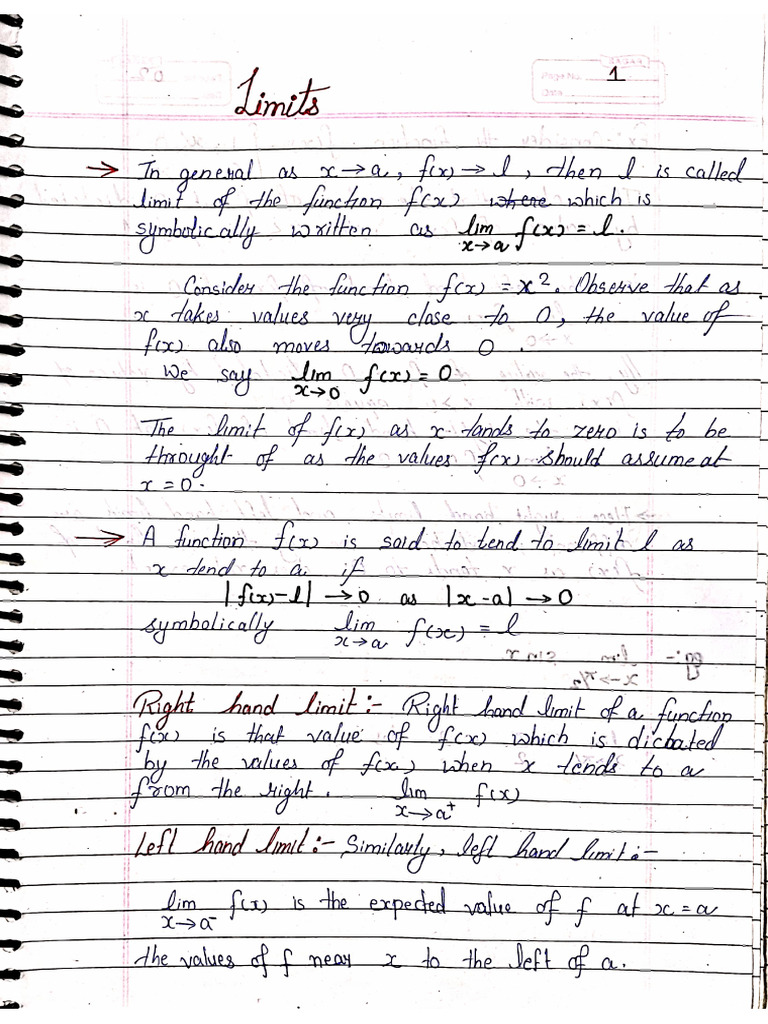 1
Limits
→ In general as x→a, f(x)→l, then l is called
limit of the function f(x) where which is
symbolically written as lim x→a f(x)=l.
Consider the function f(x) = x². Observe that as
x takes values very close to 0, the value of
f(x) also moves towards 0.
We say lim x→0 f(x)=0
The limit of f(x) as x tands to zero is to be
throught of as the values f(x) should assume at
x=0.
→ A function f(x) is said to tend to limit l as
x tend to a if
|f(x)-l| →0 as |x-a| →0
symbolically lim x→a f(x) = l
Right hand limit:- Right hand limit of a function
f(x) is that value of f(x) which is dicbated
by the values of f(x) when x tends to a
from the right. lim x→a⁺ f(x)
Left hand limit:- Similarly, left hand limit:-
lim x→a⁻ f(x) is the expected value of f at x=a
the values of f near x to the left of a.